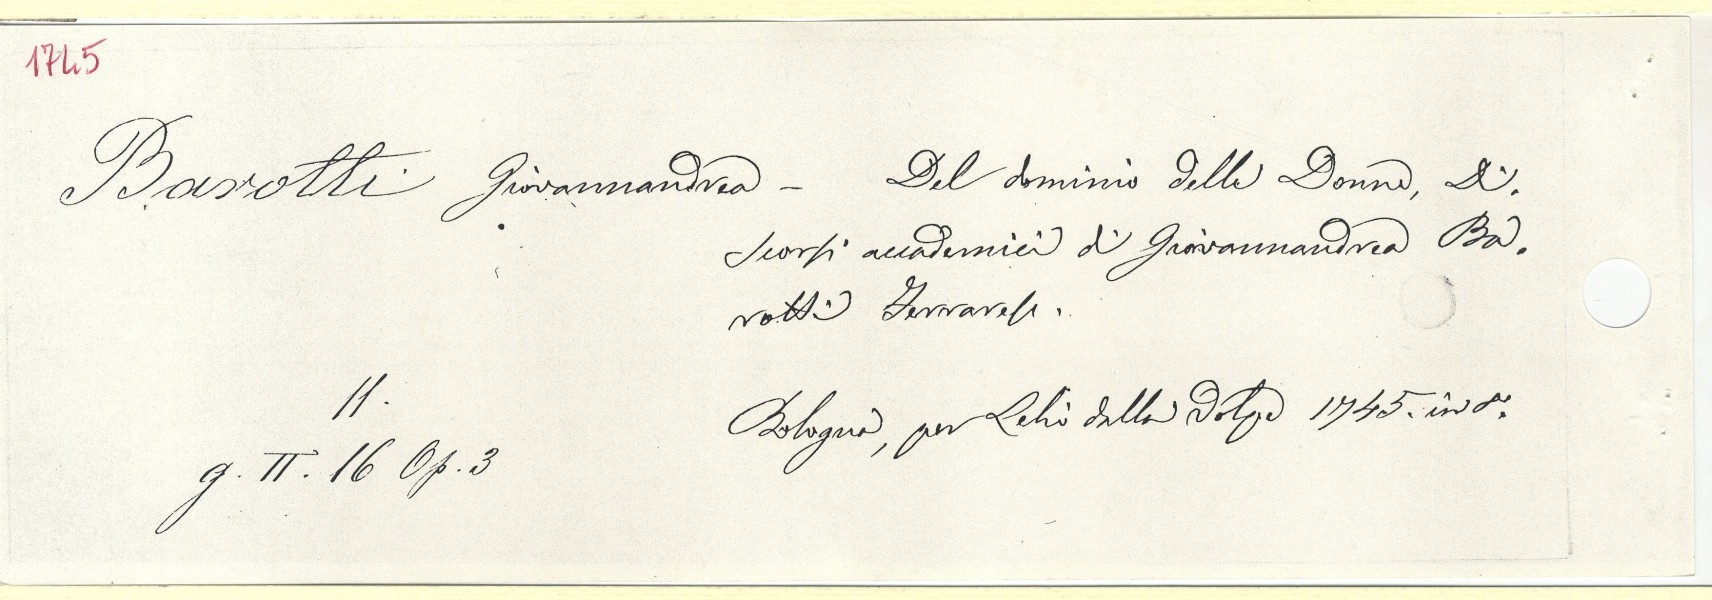 1745
Barotti Giovannandrea – Del dominio delle Donne, Di.
scorsi accademici di Giovannandrea Ba.
rotti Ferrarese.
11.
Bologna, per Lelio dalla Volpe 1745. in 8°.
g. II. 16 Op. 3